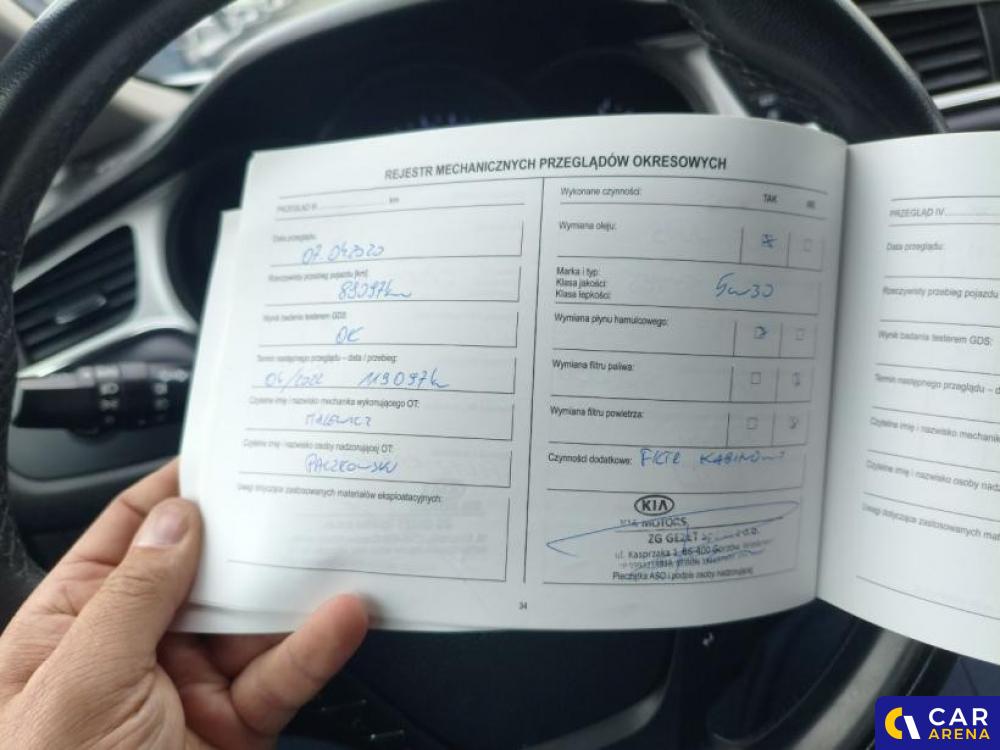 REJESTR MECHANICZNYCH PRZEGLĄDÓW OKRESOWYCH
PRZEGLĄD III km
Data przeglądu:
07.042020
Rzeczywisty przebieg pojazdu [km]:
89097km
Wynik badania testerem GDS:
OK
Termin następnego przeglądu – data / przebieg:
04/2022 119097k
Czytelne imię i nazwisko mechanika wykonującego OT:
MALEWICZ
Czytelne imię i nazwisko osoby nadzorującej OT:
PACZKOWSKI
Uwagi dotyczące zastosowanych materiałów eksploatacyjnych:
Wykonane czynności: TAK NIE
Wymiana oleju:
Marka i typ:
Klasa jakości:
Klasa lepkości:
5w30
Wymiana płynu hamulcowego:
Wymiana filtru paliwa:
Wymiana filtru powietrza:
Czynności dodatkowe: FILTR KABINOWY
KIA
KIA MOTORS
ZG GEZET
ul. Kasprzaka 1, 66-400 Gorzów
Pieczątka ASO i podpis osoby nadzorującej
34
PRZEGLĄD IV
Data przeglądu:
Rzeczywisty przebieg pojazdu
Wynik badania testerem GDS:
Termin następnego przeglądu – d
Czytelne imię i nazwisko mechanik
Czytelne imię i nazwisko osoby nadz
Uwagi dotyczące zastosowanych mate
CAR
ARENA